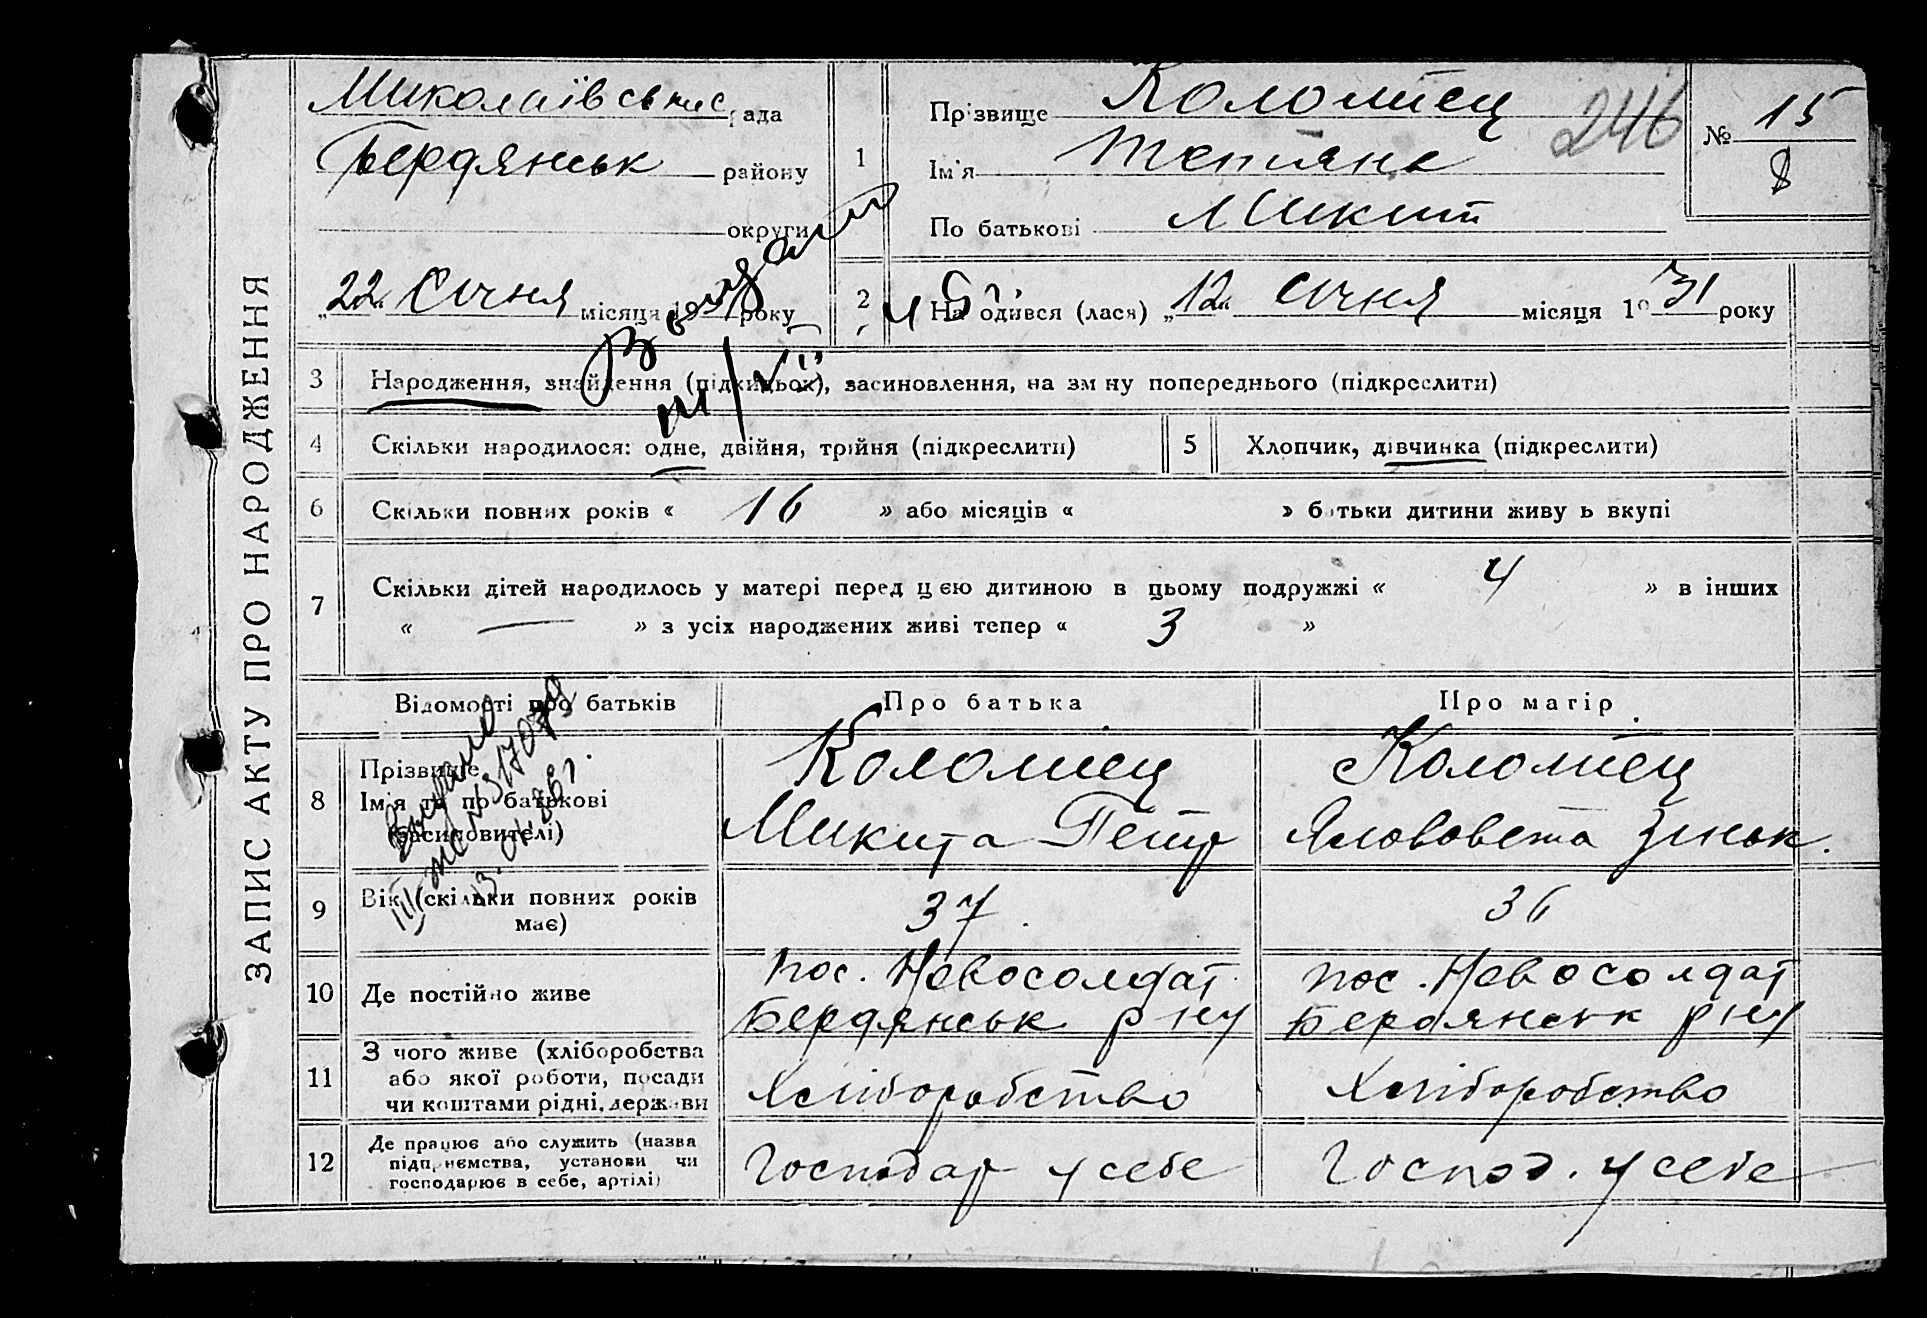 ЗАПИС АКТУ ПРО НАРОДЖЕННЯ
Миколаївськ с/рада
Бердянськ району
округи
„22“ Січня місяця 1931 року
1
Прізвище Коломієц
Ім'я Тетяна
По батькові Микит
246
№ 15
8
2
Народився (лася) „12“ січня місяця 1931 року
3 Народження, знайдення (підкидьок), засиновлення, на зміну попереднього (підкреслити)
4 Скільки народилося: одне, двійня, трійня (підкреслити)
5 Хлопчик, дівчинка (підкреслити)
6 Скільки повних років « 16 » або місяців « » батьки дитини живуть вкупі
7 Скільки дітей народилось у матері перед цією дитиною в цьому подружжі « 4 » в інших
« — » з усіх народжених живі тепер « 3 »
Відомості про батьків Про батька Про матір
8 Прізвище
Ім'я та по батькові
(засиновителі)
Коломиец
Микита Петр
Коломиец
Зінок.
9 Вік (скільки повних років
має)
37
36
10 Де постійно живе
пос. Новосолдат
Бердянськ р ну
пос. Новосолдат
Бердянськ р ну
11 З чого живе (хліборобства
або якої роботи, посади
чи коштами рідні, держави
Хліборобство
Хліборобство
12 Де працює або служить (назва
підприємства, установи чи
господарює в себе, артілі)
Господар у себе
Господ. у себе